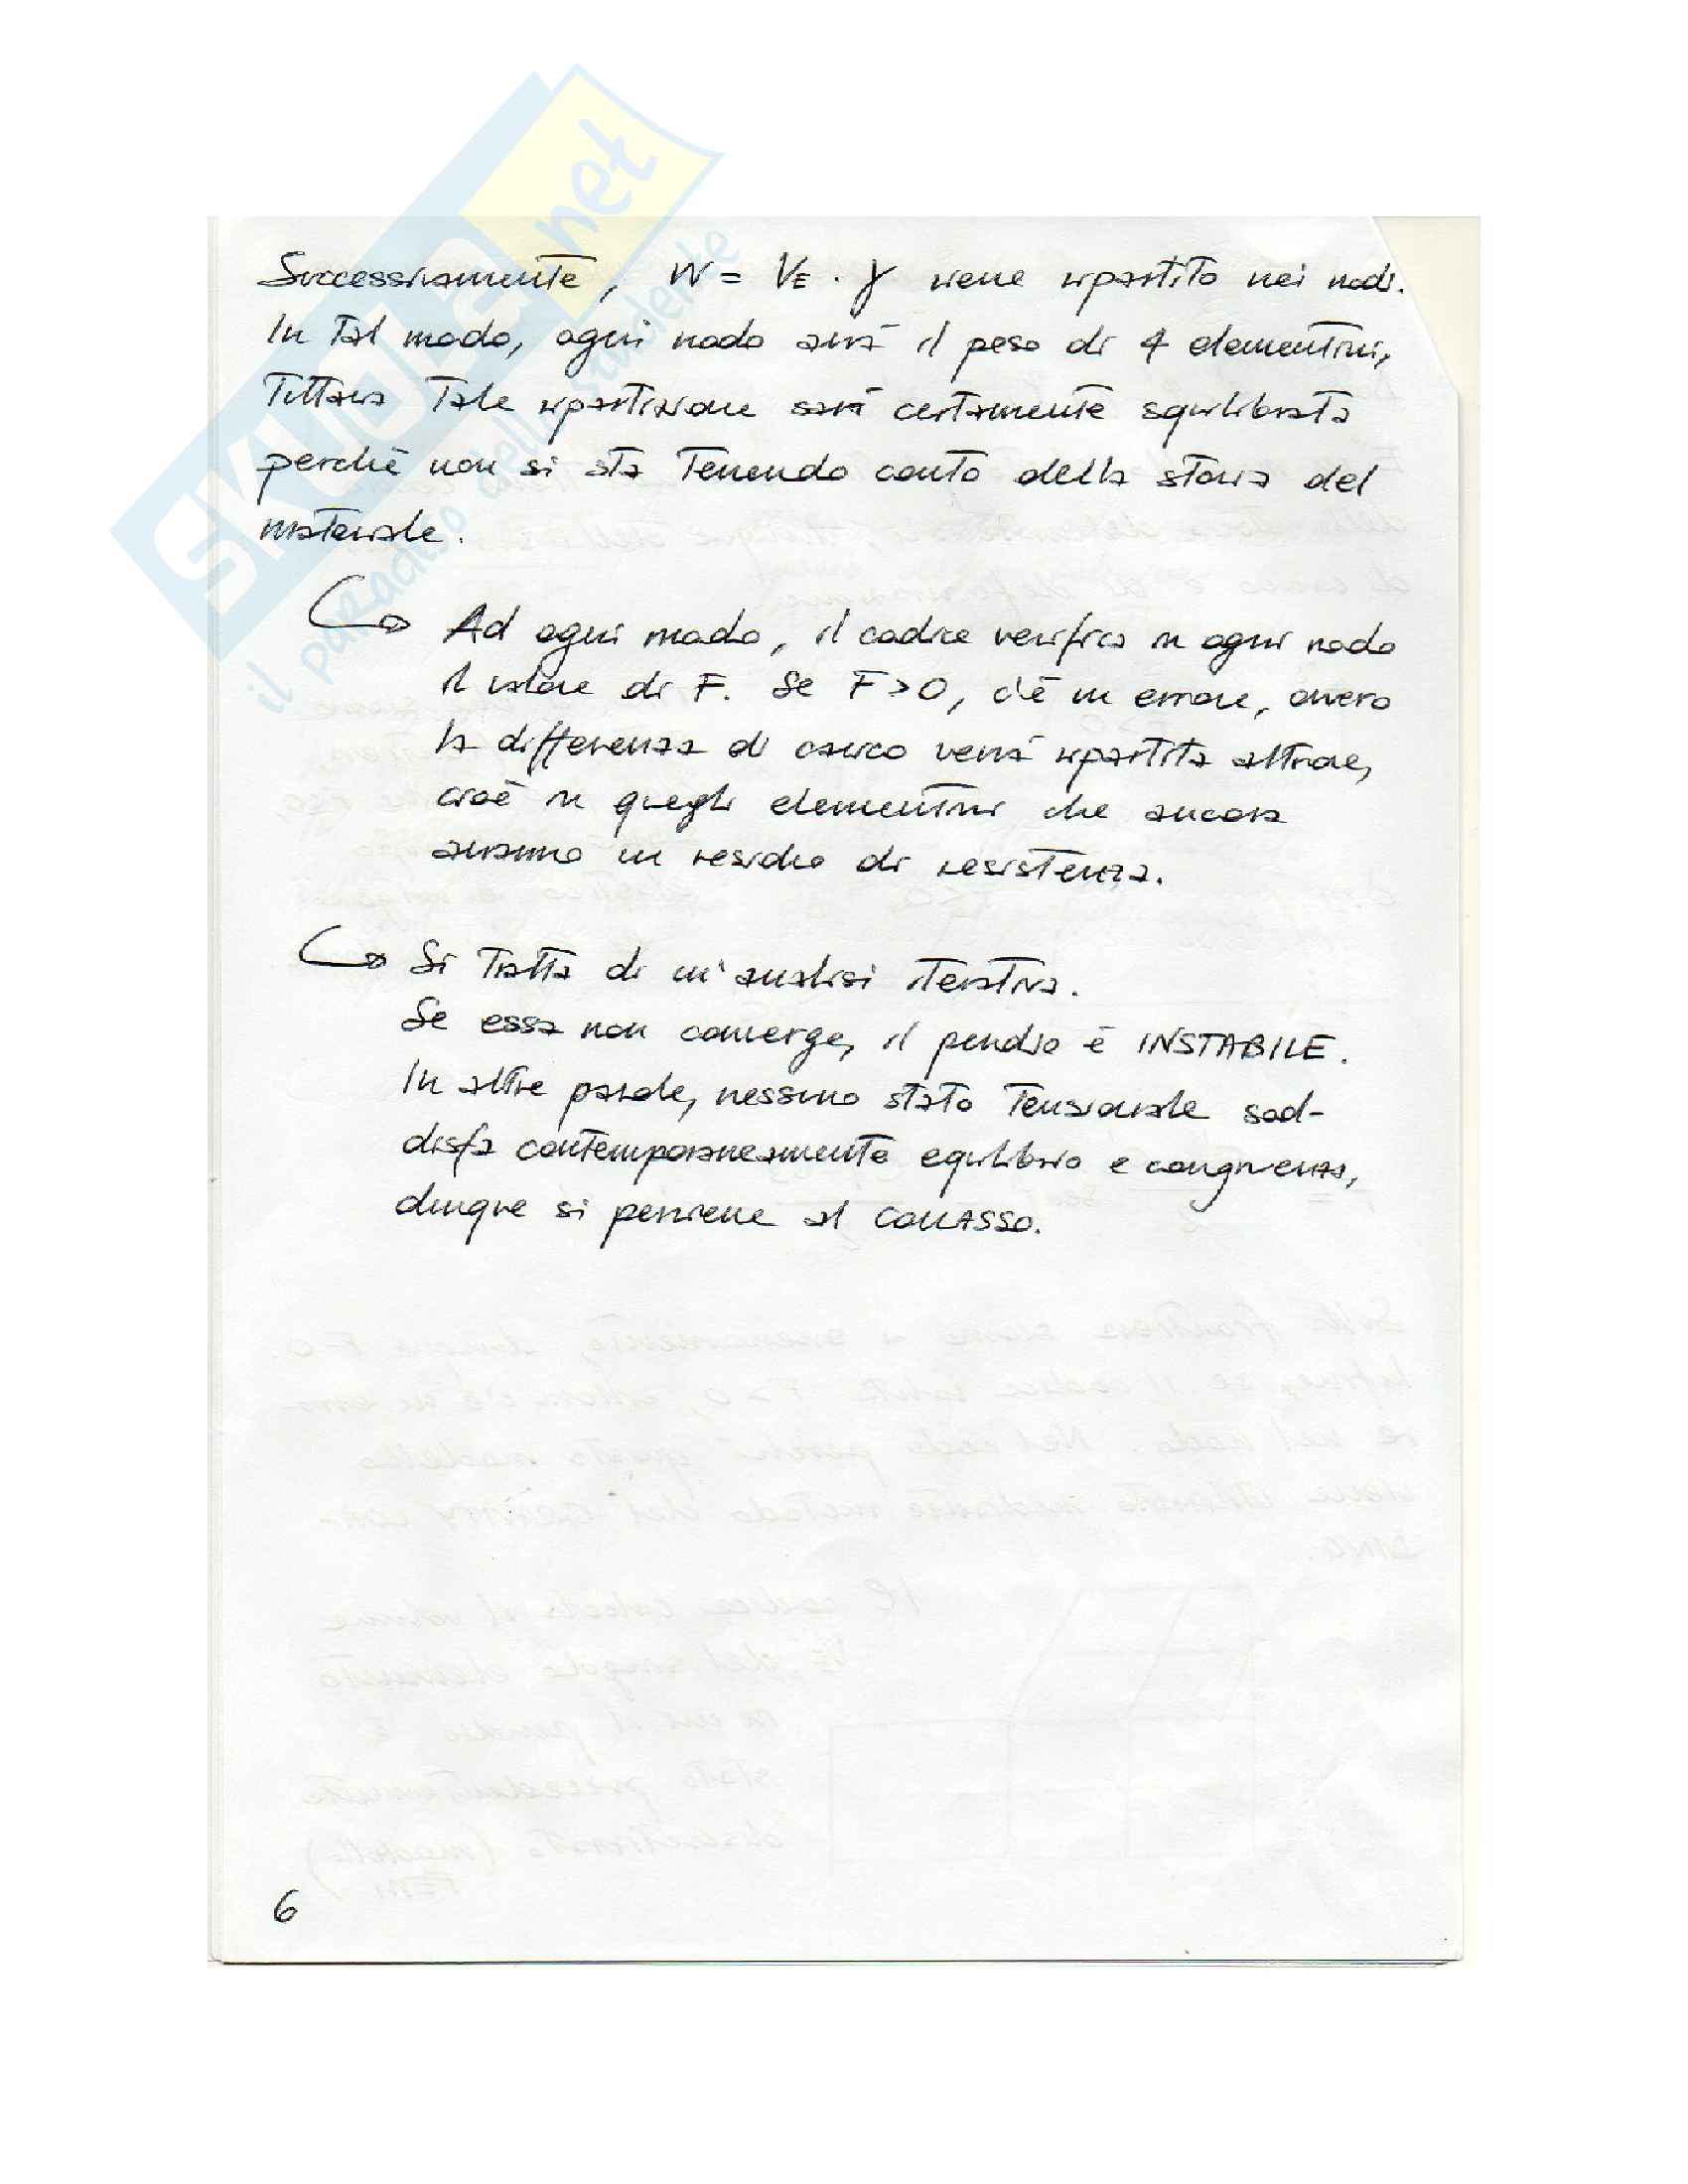 SKUOLA.net
il paradiso dello studente
Successivamente, W = VE · γ viene ripartito nei nodi.
In tal modo, ogni nodo avrà il peso di 4 elementini,
tuttavia tale ripartizione sarà certamente squilibrata
perchè non si sta tenendo conto della storia del
materiale.
Ad ogni modo, il codice verifica in ogni nodo
il valore di F. Se F>0, c'è un errore, ovvero
la differenza di carico verrà ripartita altrove,
cioè in quegli elementini che ancora
avranno un residuo di resistenza.
Si tratta di un'analisi iterativa.
Se essa non converge, il pendio è INSTABILE.
In altre parole, nessuno stato tensionale sod-
disfa contemporaneamente equilibrio e congruenza,
dunque si perviene al COLLASSO.
6